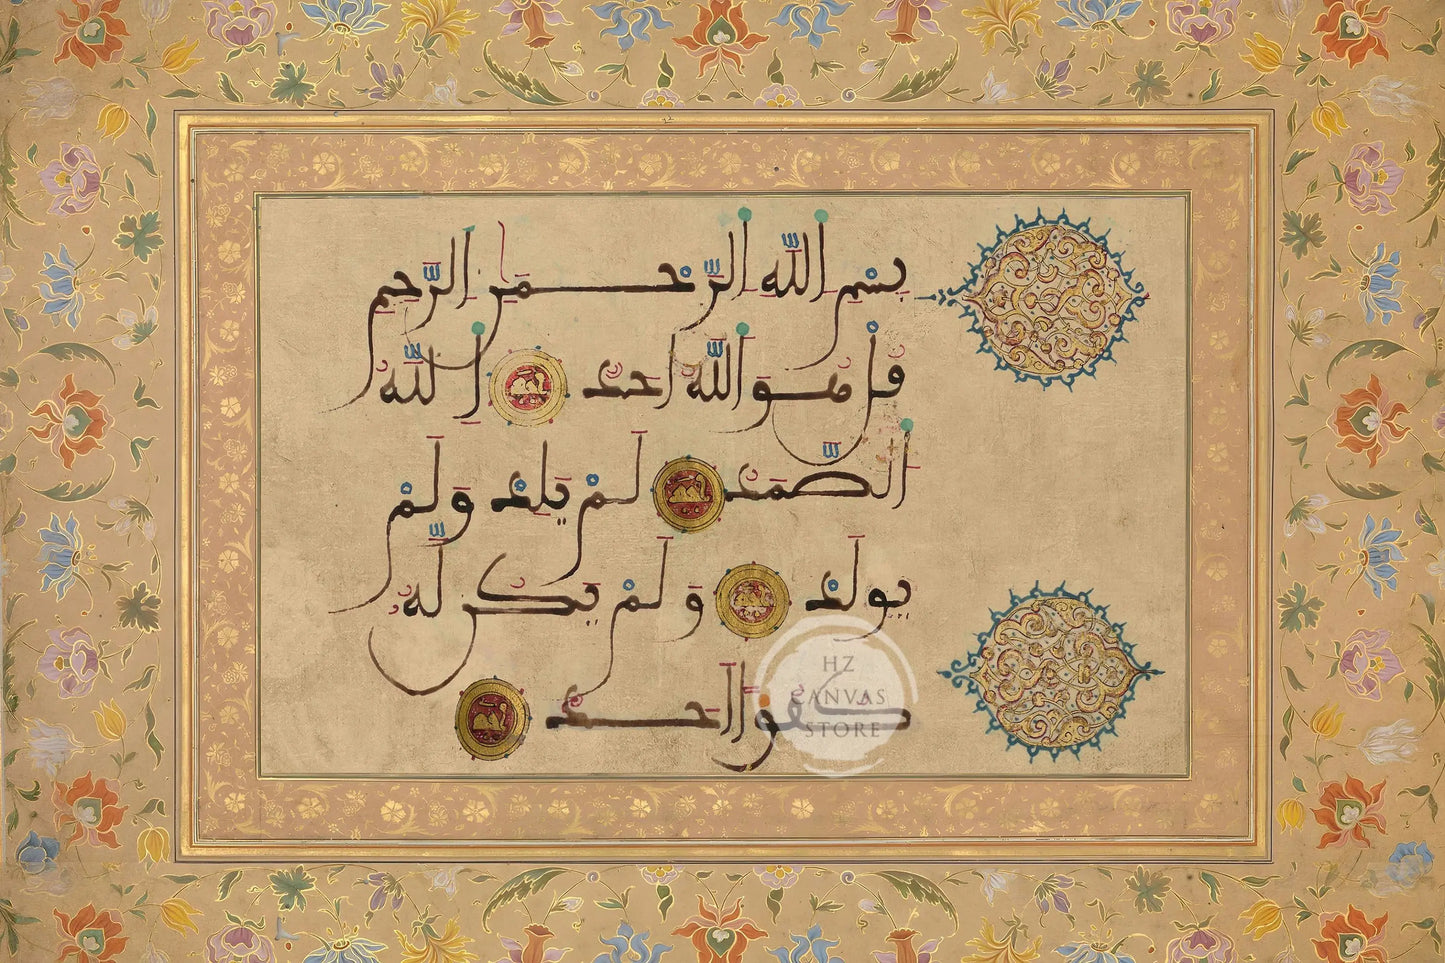 بِسْمِ اللَّهِ الرَّحْمَٰنِ الرَّحِيمِ
قُلْ هُوَ اللَّهُ أَحَدٌ اللَّهُ
الصَّمَدُ لَمْ يَلِدْ وَلَمْ
يُولَدْ وَلَمْ يَكُن لَّهُ
كُفُوًا أَحَدٌ
HZ
CANVAS
STORE